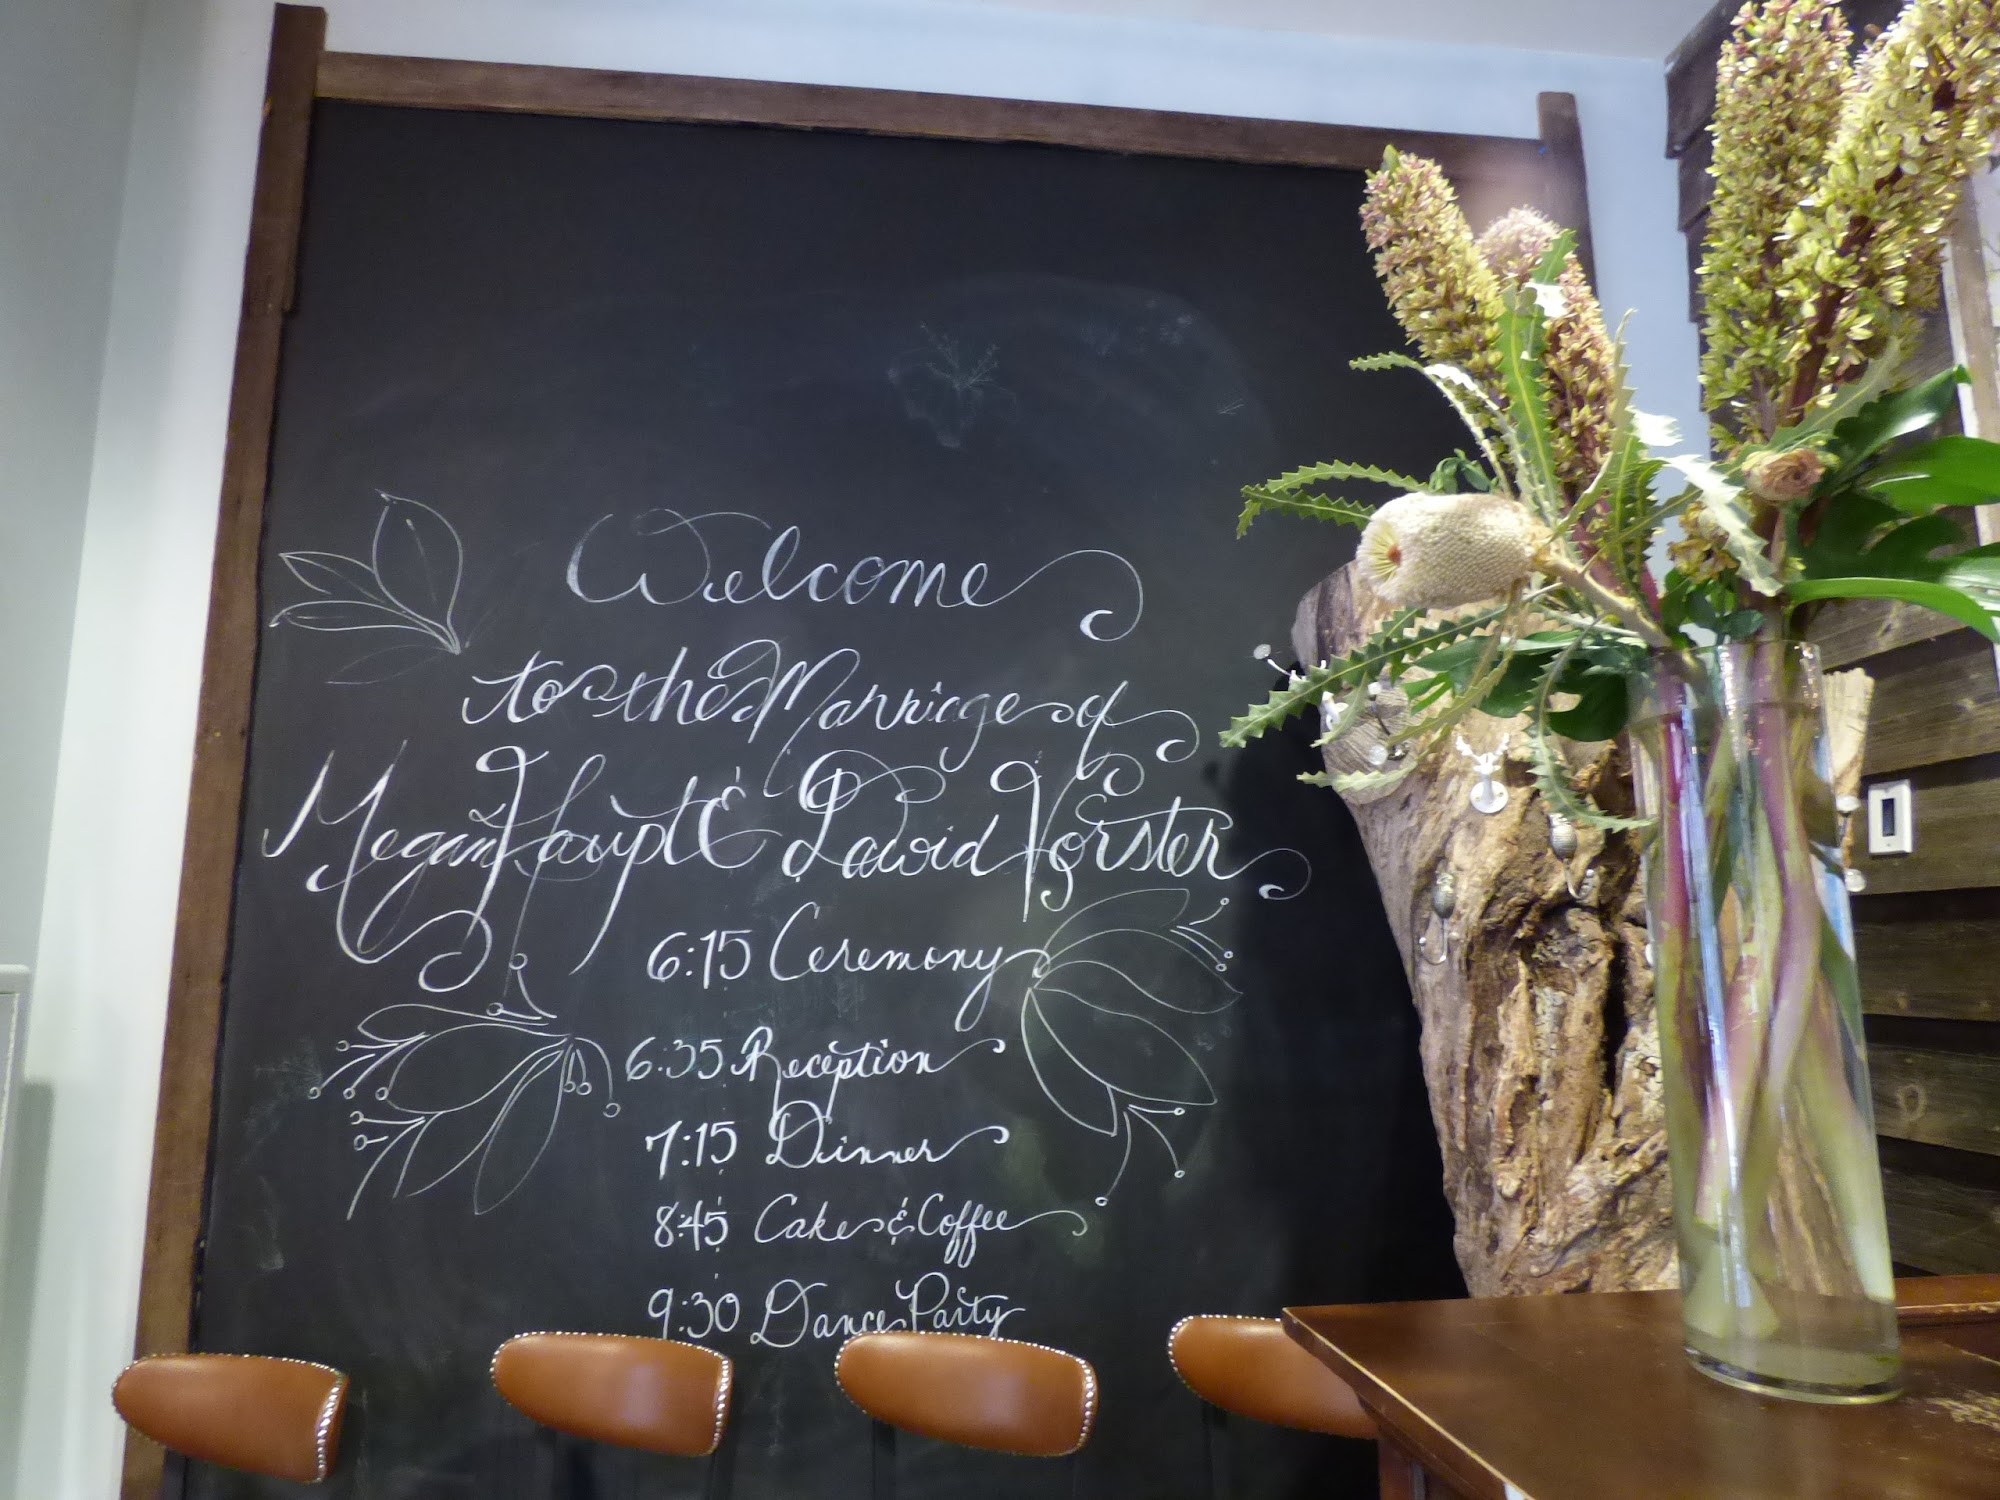 Welcome
to the Marriage of
Megan Haupt & Dawid Vorster
6:15 Ceremony
6:35 Reception
7:15 Dinner
8:45 Cake & Coffee
9:30 Dance Party